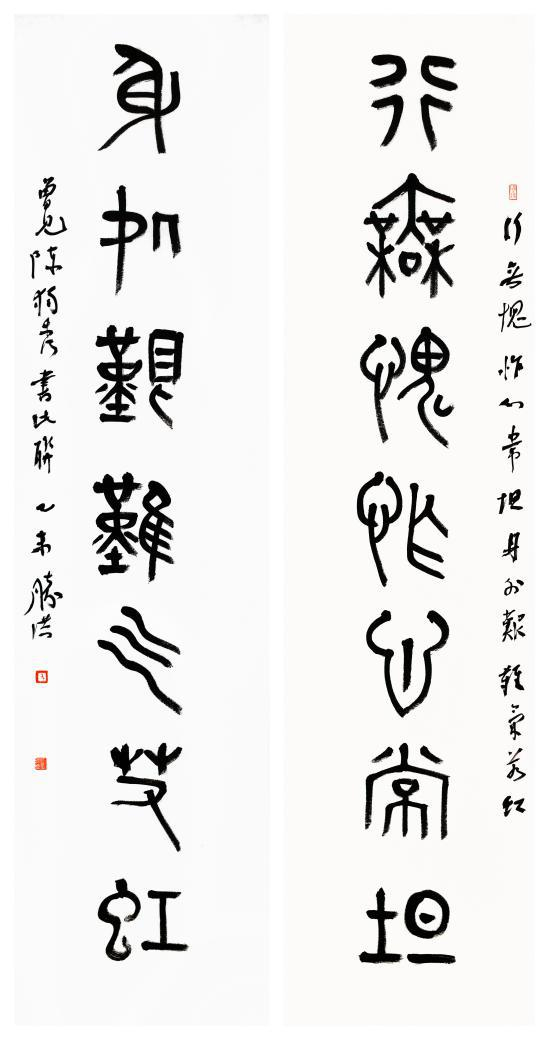 行無愧怍心常坦身处艱難氣若虹
行無愧怍心常坦
身処艱難气若虹
曾見陳獨秀書此聯乙未勝洪